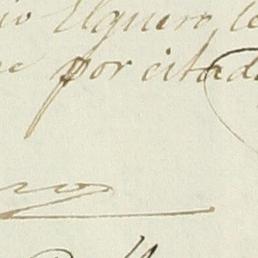 io Elguero, le
e por citada
ro